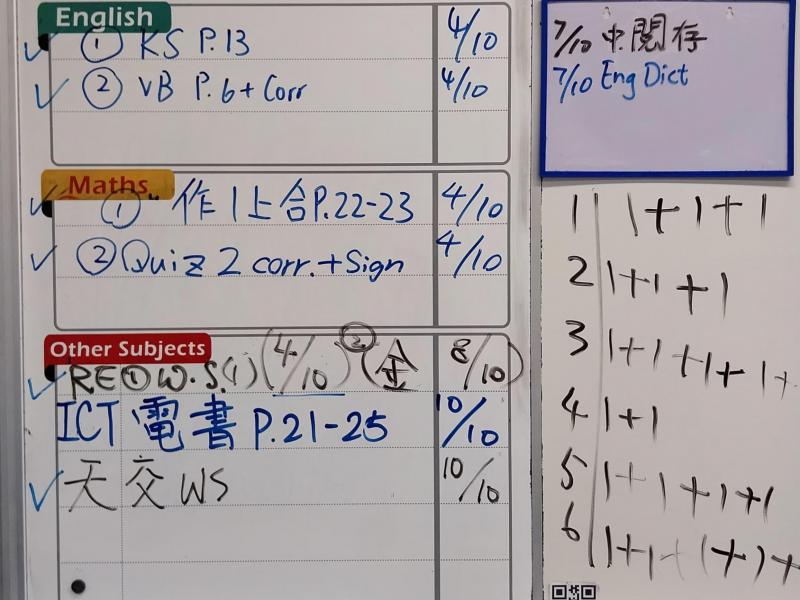 English
① KS P.13 4/10
② VB P.6 + Corr 4/10
Maths
① 作1上合P.22-23 4/10
② Quiz 2 corr. + Sign 4/10
Other Subjects
RE ① W.S.(1) (4/10) ② (金 8/10)
ICT 電書 P.21-25 10/10
天交 WS 10/10
7/10 中閱存
7/10 Eng Dict
1 1+1+1
2 1+1+1
3 1+1+1+1+
4 1+1
5 1+1+1+1
6 1+1+(+)+